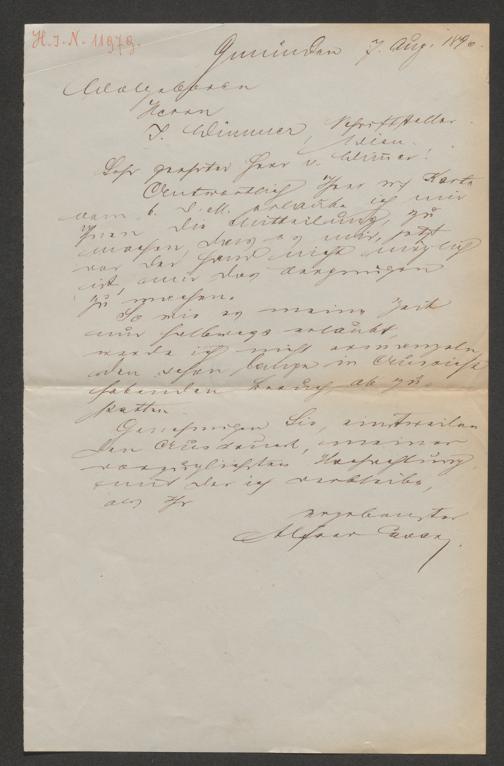 H.I.N. 11979.
Gmünden 7. Aug. 1890.
Wolgeboren
Herrn
J. Wimmer, Schriftsteller
Wien.
Sehr geehrter Herr v. Wimer!
Antwortlich Ihrer Karte
vom 6. d. M. erlaube ich mir
Ihnen die Mitteilung zu
machen, dass es mir jetzt
vor der Hand nicht möglich
ist, das Vergnügen
zu machen.
So wie es meine Zeit
nur halbwegs erlaubt,
werde ich nicht ermangeln
den schon lange in Aussicht
habenden Besuch ab zu
statten.
Genehmigen Sie, einstweilen
den Ausdruck, meiner
vorzüglichsten Hochachtung
mit der ich verbleibe,
als Ihr
ergebenster